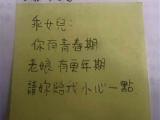 乖女兒:
你有青春期
老娘有更年期
請妳給我小心一點